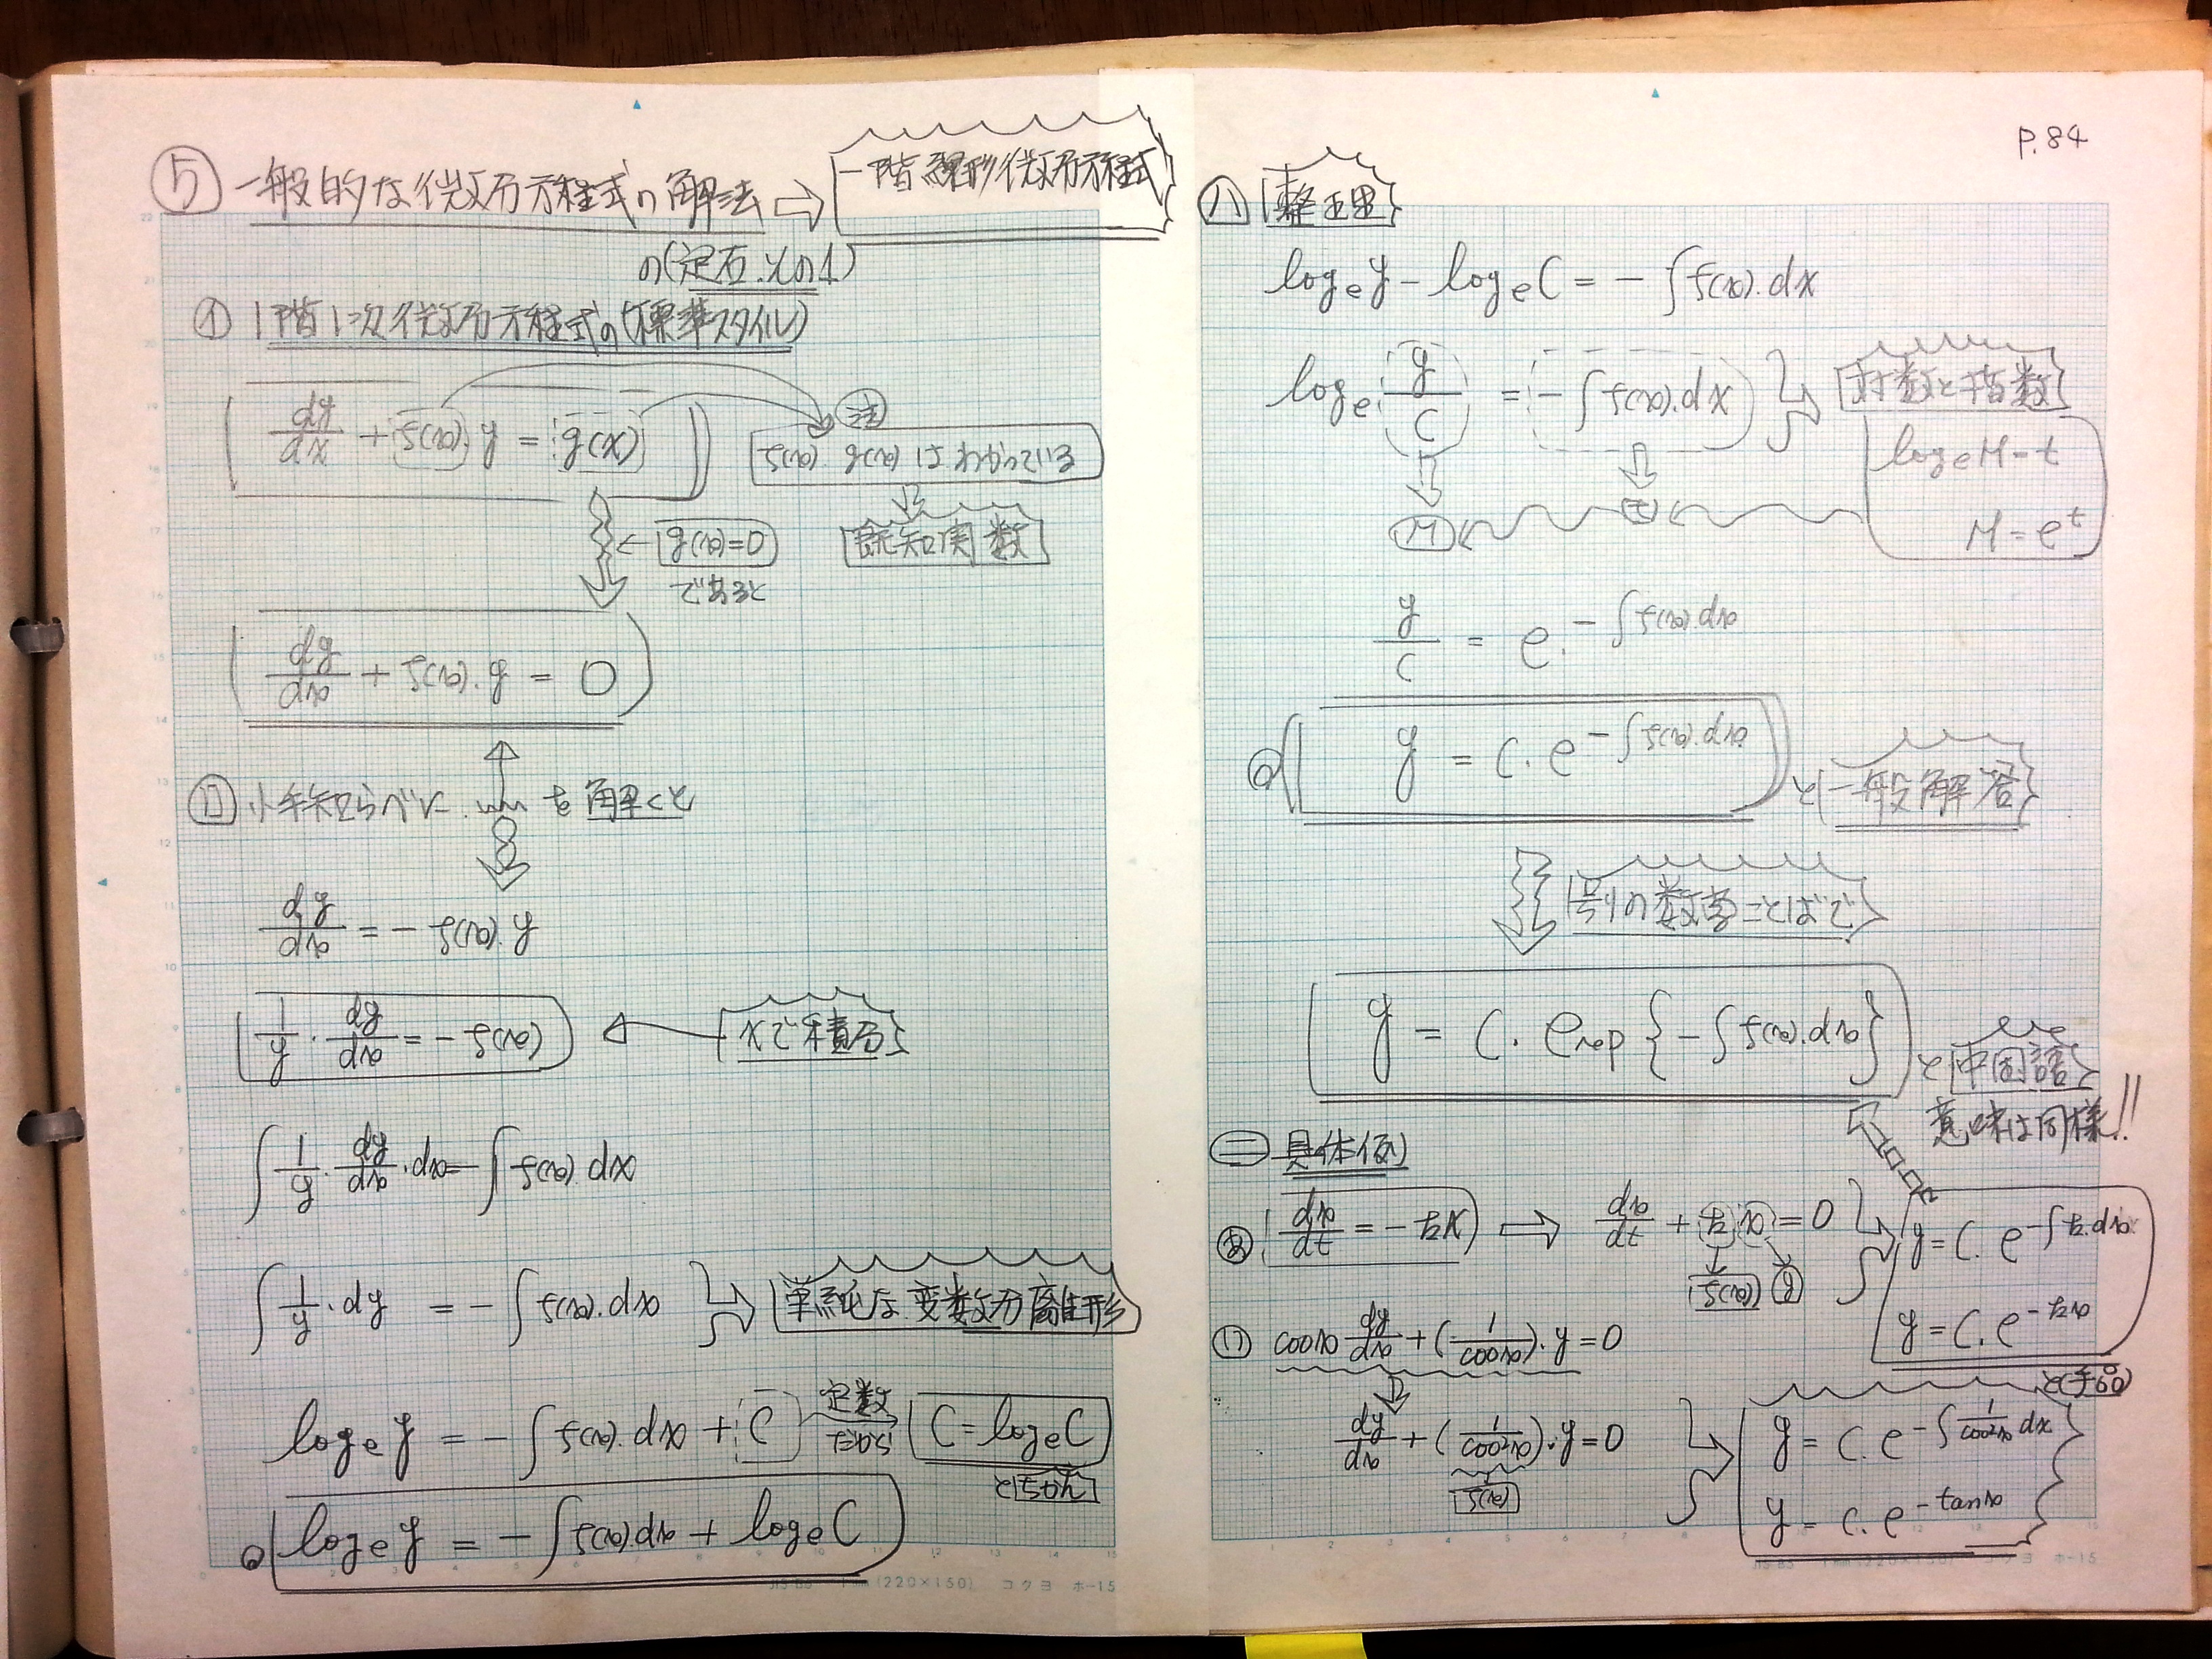 ⑤ 一般的な微分方程式の解法 ⇨ 一階線形微分方程式
の(定石.その1)
㋑ 1階1次微分方程式の(標準スタイル)
dy/dx + f(x).y = g(x)
注
f(x). g(x) は わかっている
既知関数
g(x)=0
であると
dy/dx + f(x).y = 0
㋺ 小手知らべに を解くと
dy/dx = - f(x).y
1/y . dy/dx = - f(x) xで積分
∫ 1/y . dy/dx . dx = - ∫ f(x).dx
∫ 1/y . dy = - ∫ f(x).dx 単純な変数分離形
loge y = - ∫ f(x).dx + C 定数だから C = loge C
とおちかん
loge y = - ∫ f(x).dx + loge C
P.84
㋩ 整理
loge y - loge C = - ∫ f(x).dx
loge y/C = - ∫ f(x).dx 対数と指数
loge M = t
M t
M = e^t
y/C = e.^- ∫ f(x).dx
y = C.e^- ∫ f(x).dx と一般解答
別の数学ことばで
y = C.exp {- ∫ f(x).dx} と中国語と
意味は同様!!
㊁ 具体例
あ dx/dt = - kx ⇨ dx/dt + k x = 0
f(x) y
y = C.e^- ∫ k.dx
y = C.e^-kx
と(手品)
い cosx dy/dx + (1/cosx).y = 0
dy/dx + (1/cos²x).y = 0
f(x)
y = C.e^- ∫ 1/cos²x dx
y = C.e^-tanx
1mm(220×150) コクヨ ホ-15
コクヨ ホ-15